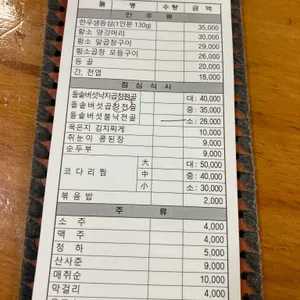 품 명 수량 금액
안 주 류
한우생등심(1인분 130g) 35,000
황소 양깃머리 30,000
황소 알곱창구이 29,000
황소곱창 모듬구이 26,000
등 골 20,000
간, 천엽 18,000
점 심 식 사
돌솥버섯낙지곱창전골 대: 40,000
돌솥버섯곱창전골 중: 35,000
돌솥버섯불낙전골 소: 28,000
묵은지 김치찌게 10,000
쥐눈이 콩된장 9,000
순두부 9,000
코다리찜 大 대: 50,000
中 중: 40,000
小 소: 30,000
볶음밥 2,000
주 류
소 주 4,000
맥 주 4,000
청 하 5,000
산사춘 9,000
매취순 10,000
막걸리 4,000